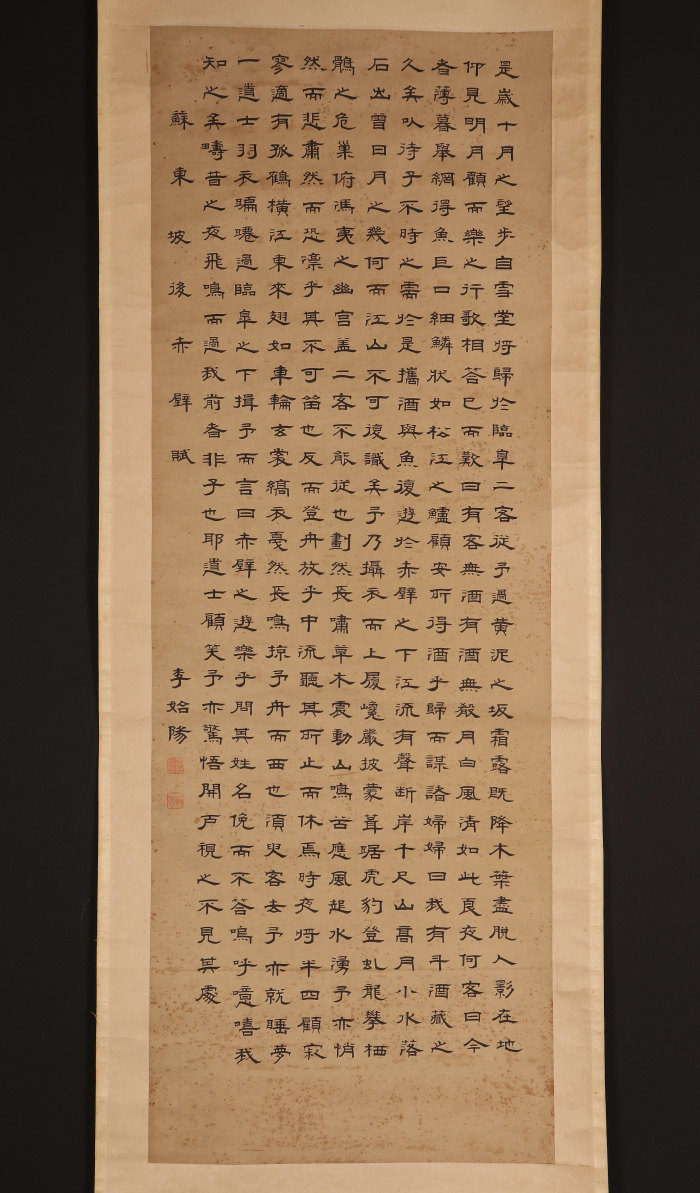 是歲十月之望步自雪堂將歸於臨皐二客從予過黃泥之坂霜露既降木葉盡脫人影在地
仰見明月顧而樂之行歌相答已而歎曰有客無酒有酒無殽月白風清如此良夜何客曰今
者薄暮舉網得魚巨口細鱗狀如松江之鱸顧安所得酒乎歸而謀諸婦婦曰我有斗酒藏之
久矣以待子不時之需於是攜酒與魚復遊於赤壁之下江流有聲斷岸千尺山高月小水落
石出曾日月之幾何而江山不可復識矣予乃攝衣而上履巉巖披蒙茸踞虎豹登虬龍攀栖
鶻之危巢俯馮夷之幽宮盖二客不能從也劃然長嘯草木震動山鳴谷應風起水湧予亦悄
然而悲肅然而恐凜乎其不可留也反而登舟放乎中流聽其所止而休焉時夜將半四顧寂
寥適有孤鶴橫江東來翅如車輪玄裳縞衣戛然長鳴掠予舟而西也須臾客去予亦就睡夢
一道士羽衣蹁躚過臨皐之下揖予而言曰赤壁之遊樂乎問其姓名俛而不答嗚呼噫嘻我
知之矣疇昔之夜飛鳴而過我前者非子也耶道士顧笑予亦驚悟開戶視之不見其處
蘇東坡後赤壁賦 李始陽